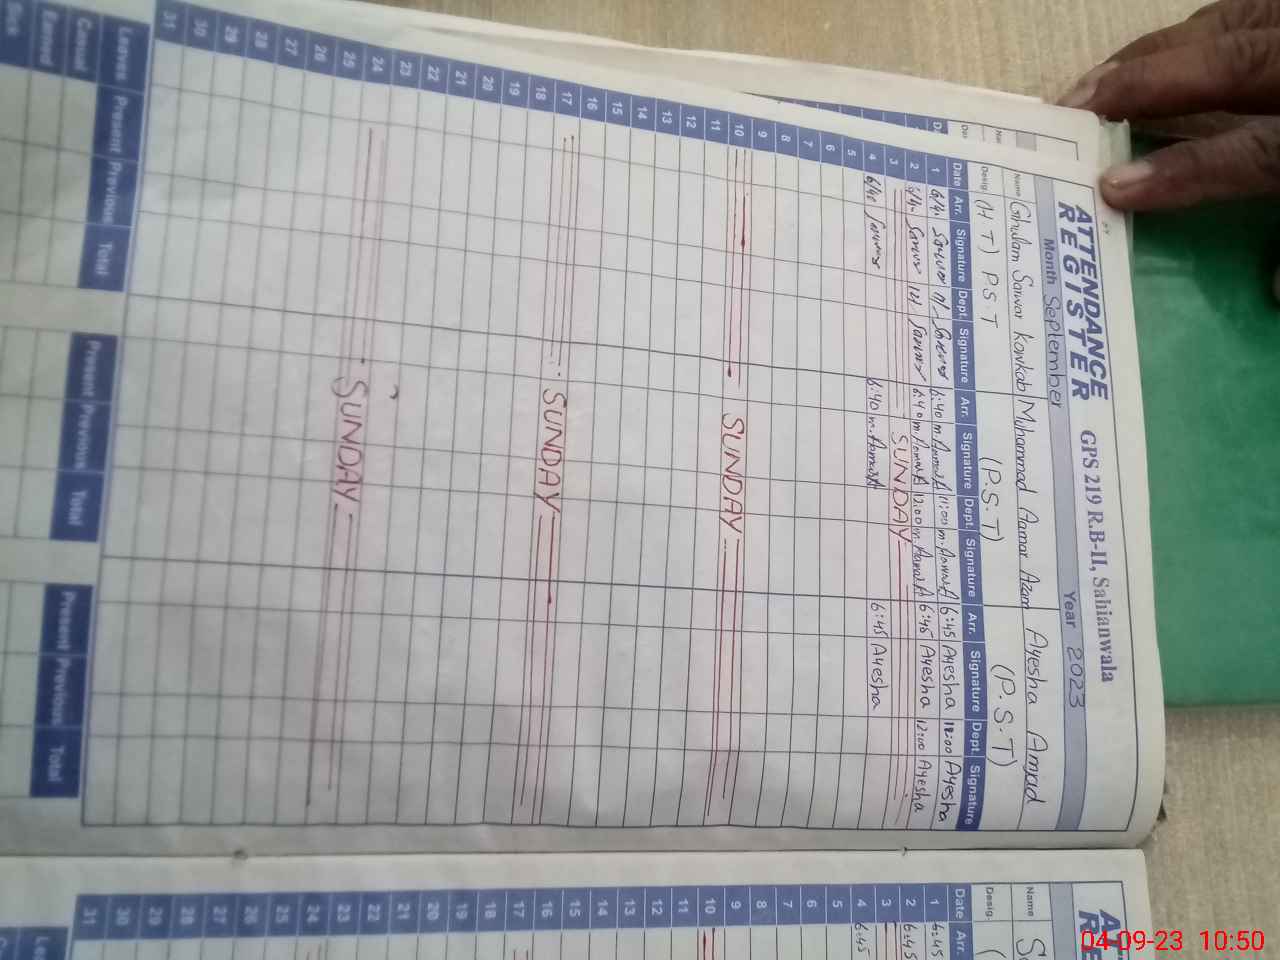 ATTENDANCE REGISTER GPS 219 R.B-II, Sahianwala
Month September Year 2023
Name Ghulam Sarwar Kowkab Muhammad Aamar Azam Ayesha Amjad
Desig. (H T) P.S.T (P.S.T) (P.S.T)
Date Arr. Signature Dept. Signature Arr. Signature Dept. Signature Arr. Signature Dept. Signature
1 6:40 11:00 6:45 Ayesha 11:00 Ayesha
2 6:40 12:00 6:45 Ayesha 12:00 Ayesha
3 SUNDAY
4 6:40 6:45 Ayesha
5
6
7
8
9
10 SUNDAY
11
12
13
14
15
16
17 SUNDAY
18
19
20
21
22
23
24 SUNDAY
25
26
27
28
29
30
31
Leaves Present Previous Total Present Previous Total Present Previous Total
Casual
Earned
Sick
Name
Desig.
Date Arr.
1 6:45
2 6:45
3
4 6:45
5
6
7
8
9
10
11
12
13
14
15
16
17
18
19
20
21
22
23
24
25
26
27
28
29
30
31
04-09-23 10:50